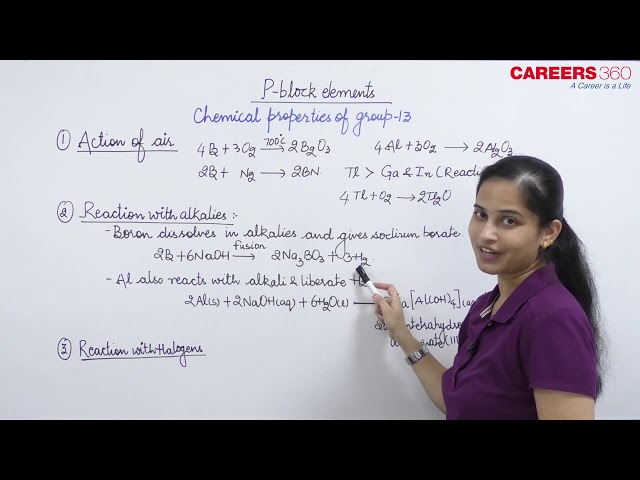 CAREERS360
A Career is a Life
P-block elements
Chemical properties of group-13
① Action of air
4B + 3O₂ 700°C→ 2B₂O₃
4Al + 3O₂ → 2Al₂O₃
2B + N₂ → 2BN
Tl > Ga & In (Reac
4Tl + O₂ → 2Tl₂O
② Reaction with alkalies :-
- Boron dissolves in alkalies and gives sodium borate.
2B + 6NaOH fusion→ 2Na₃BO₃ + 3H₂.
- Al also reacts with alkali & liberate H
2Al(s) + 2NaOH(aq) + 6H₂O(l) → a[Al(OH)₄](aq
tetrahydro
(III
③ Reaction with Halogens